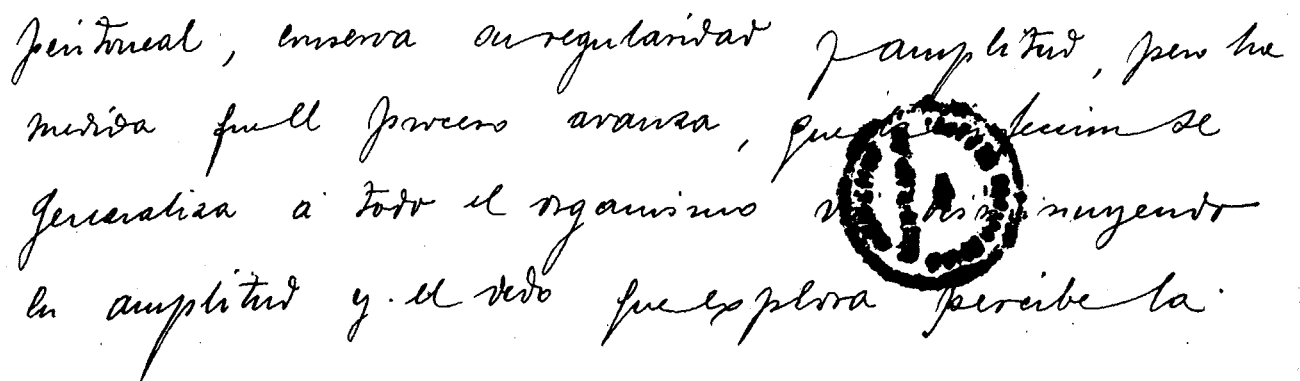 peritoneal, conserva su regularidad y amplitud, pero ha
medida que el proceso avanza, que se
generaliza á todo el organismo va disminuyendo
en amplitud y el dedo que explora percibe la